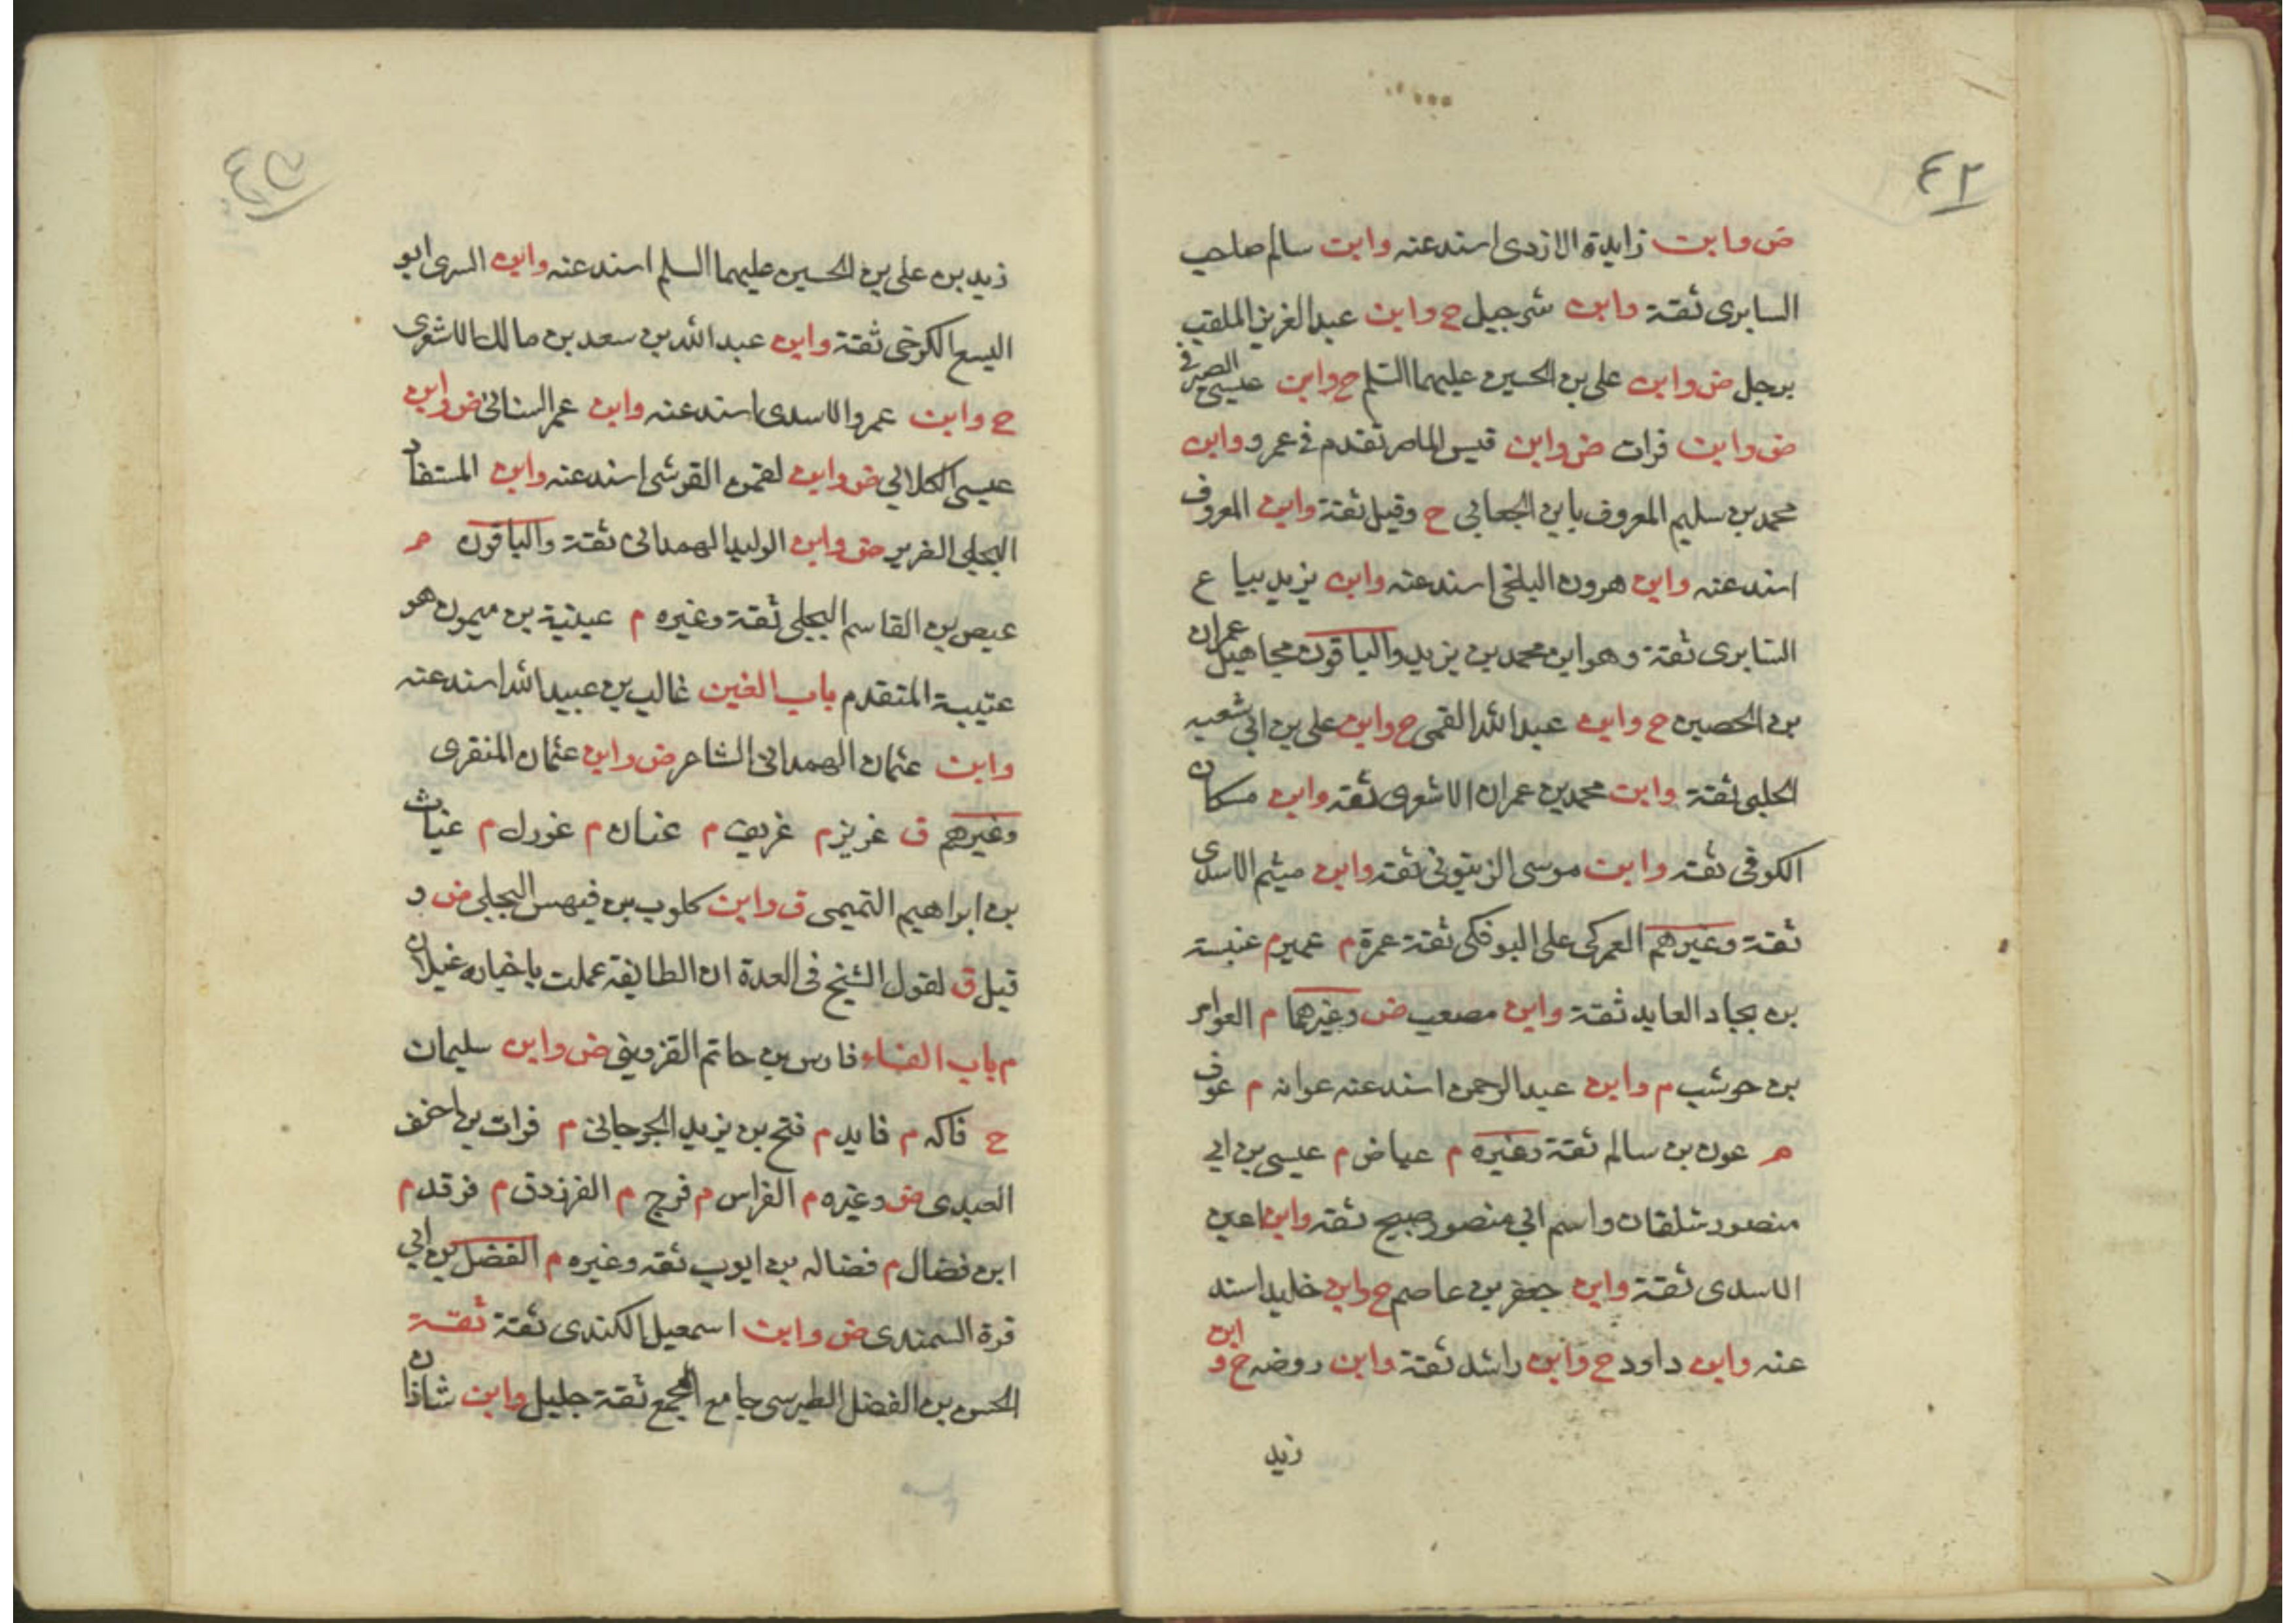 ٤٢
ض وابن زايدة الازدى اسند عنه وابن سالم صاحب
السابرى ثقة وابن شرجيل ح وابن عبد العزيز الملقب
برجل ض وابن على بن الحسين عليهما السلم ح وابن عيسى الصيرفى
ض وابن فرات ض وابن قيس الماصر تقدم فى عمرو وابن
محمد بن سليم المعروف بابن الجعابى ح وقيل ثقة وابن المعروف
اسند عنه وابن هرون البلخى اسند عنه وابن يزيد بياع
السابرى ثقة وهو ابن محمد بن يزيد والباقون مجاهيل عمران
بن الحصين ح وابن عبد الله القمى ح وابن على بن ابى شعبه
الحلبى ثقة وابن محمد بن عمران الاشعرى ثقه وابن مسكان
الكوفى ثقه وابن موسى الزيتونى ثقه وابن ميثم الاسدى
ثقة وغيرهم العمركى على البوفكى ثقة عمرة م عمير م عنبسة
بن بجاد العابد ثقة وابن مصعب ض وغيرهما م العوام
بن حوشب م وابن عبد الرحمن اسند عنه عوانه م عوف
م عون بن سالم ثقة وغيره م عياض م عيسى بن ابى
منصور شلقان واسم ابى منصور صبيح ثقه وابن اعين
الاسدى ثقة وابن جعفر بن عاصم ح وابن خليد اسند
عنه وابن داود ح وابن راشد ثقة وابن روضه ح و ابن
زيد
٤٣
زيد بن على بن الحسين عليهما السلم اسند عنه وابن السرى ابو
اليسع الكرخى ثقة وابن عبد الله بن سعد بن مالك الاشعرى
ح وابن عمرو الاسدى اسند عنه وابن عمر السنانى ض وابن
عيسى الكلابى ض وابن لقمن القرشى اسند عنه وابن المستفاد
البجلى الضرير ض وابن الوليد الهمدانى ثقة والباقون م
عيص بن القاسم البجلى ثقة وغيره م عيينة بن ميمون هو
عتيبة المتقدم باب الغين غالب بن عبيد الله اسند عنه
وابن عثمان الهمدانى الشاعر ض وابن عثمان المنقرى
وغيرهم ق غريز م غريف م عنان م غورل م غياث
بن ابراهيم التميمى ق وابن كلوب بن فيهس البجلى ض و
قيل ق لقول الشيخ فى العدة ان الطايفة عملت باخباره غيلان
م باب الفاء فارس بن حاتم القزوينى ض وابن سليمان
ح فاكه م فايد م فتح بن يزيد الجرجانى م فرات بن اخنف
العبدى ض وغيره م الفراس م فرج م الفرزدق م فرقد م
ابن فضال م فضاله بن ايوب ثقه وغيره م الفضل بن ابى
قرة السمندى ض وابن اسمعيل الكندى ثقة ثقة
الحسن بن الفضل الطبرسى جامع المجمع ثقة جليل وابن شاذان